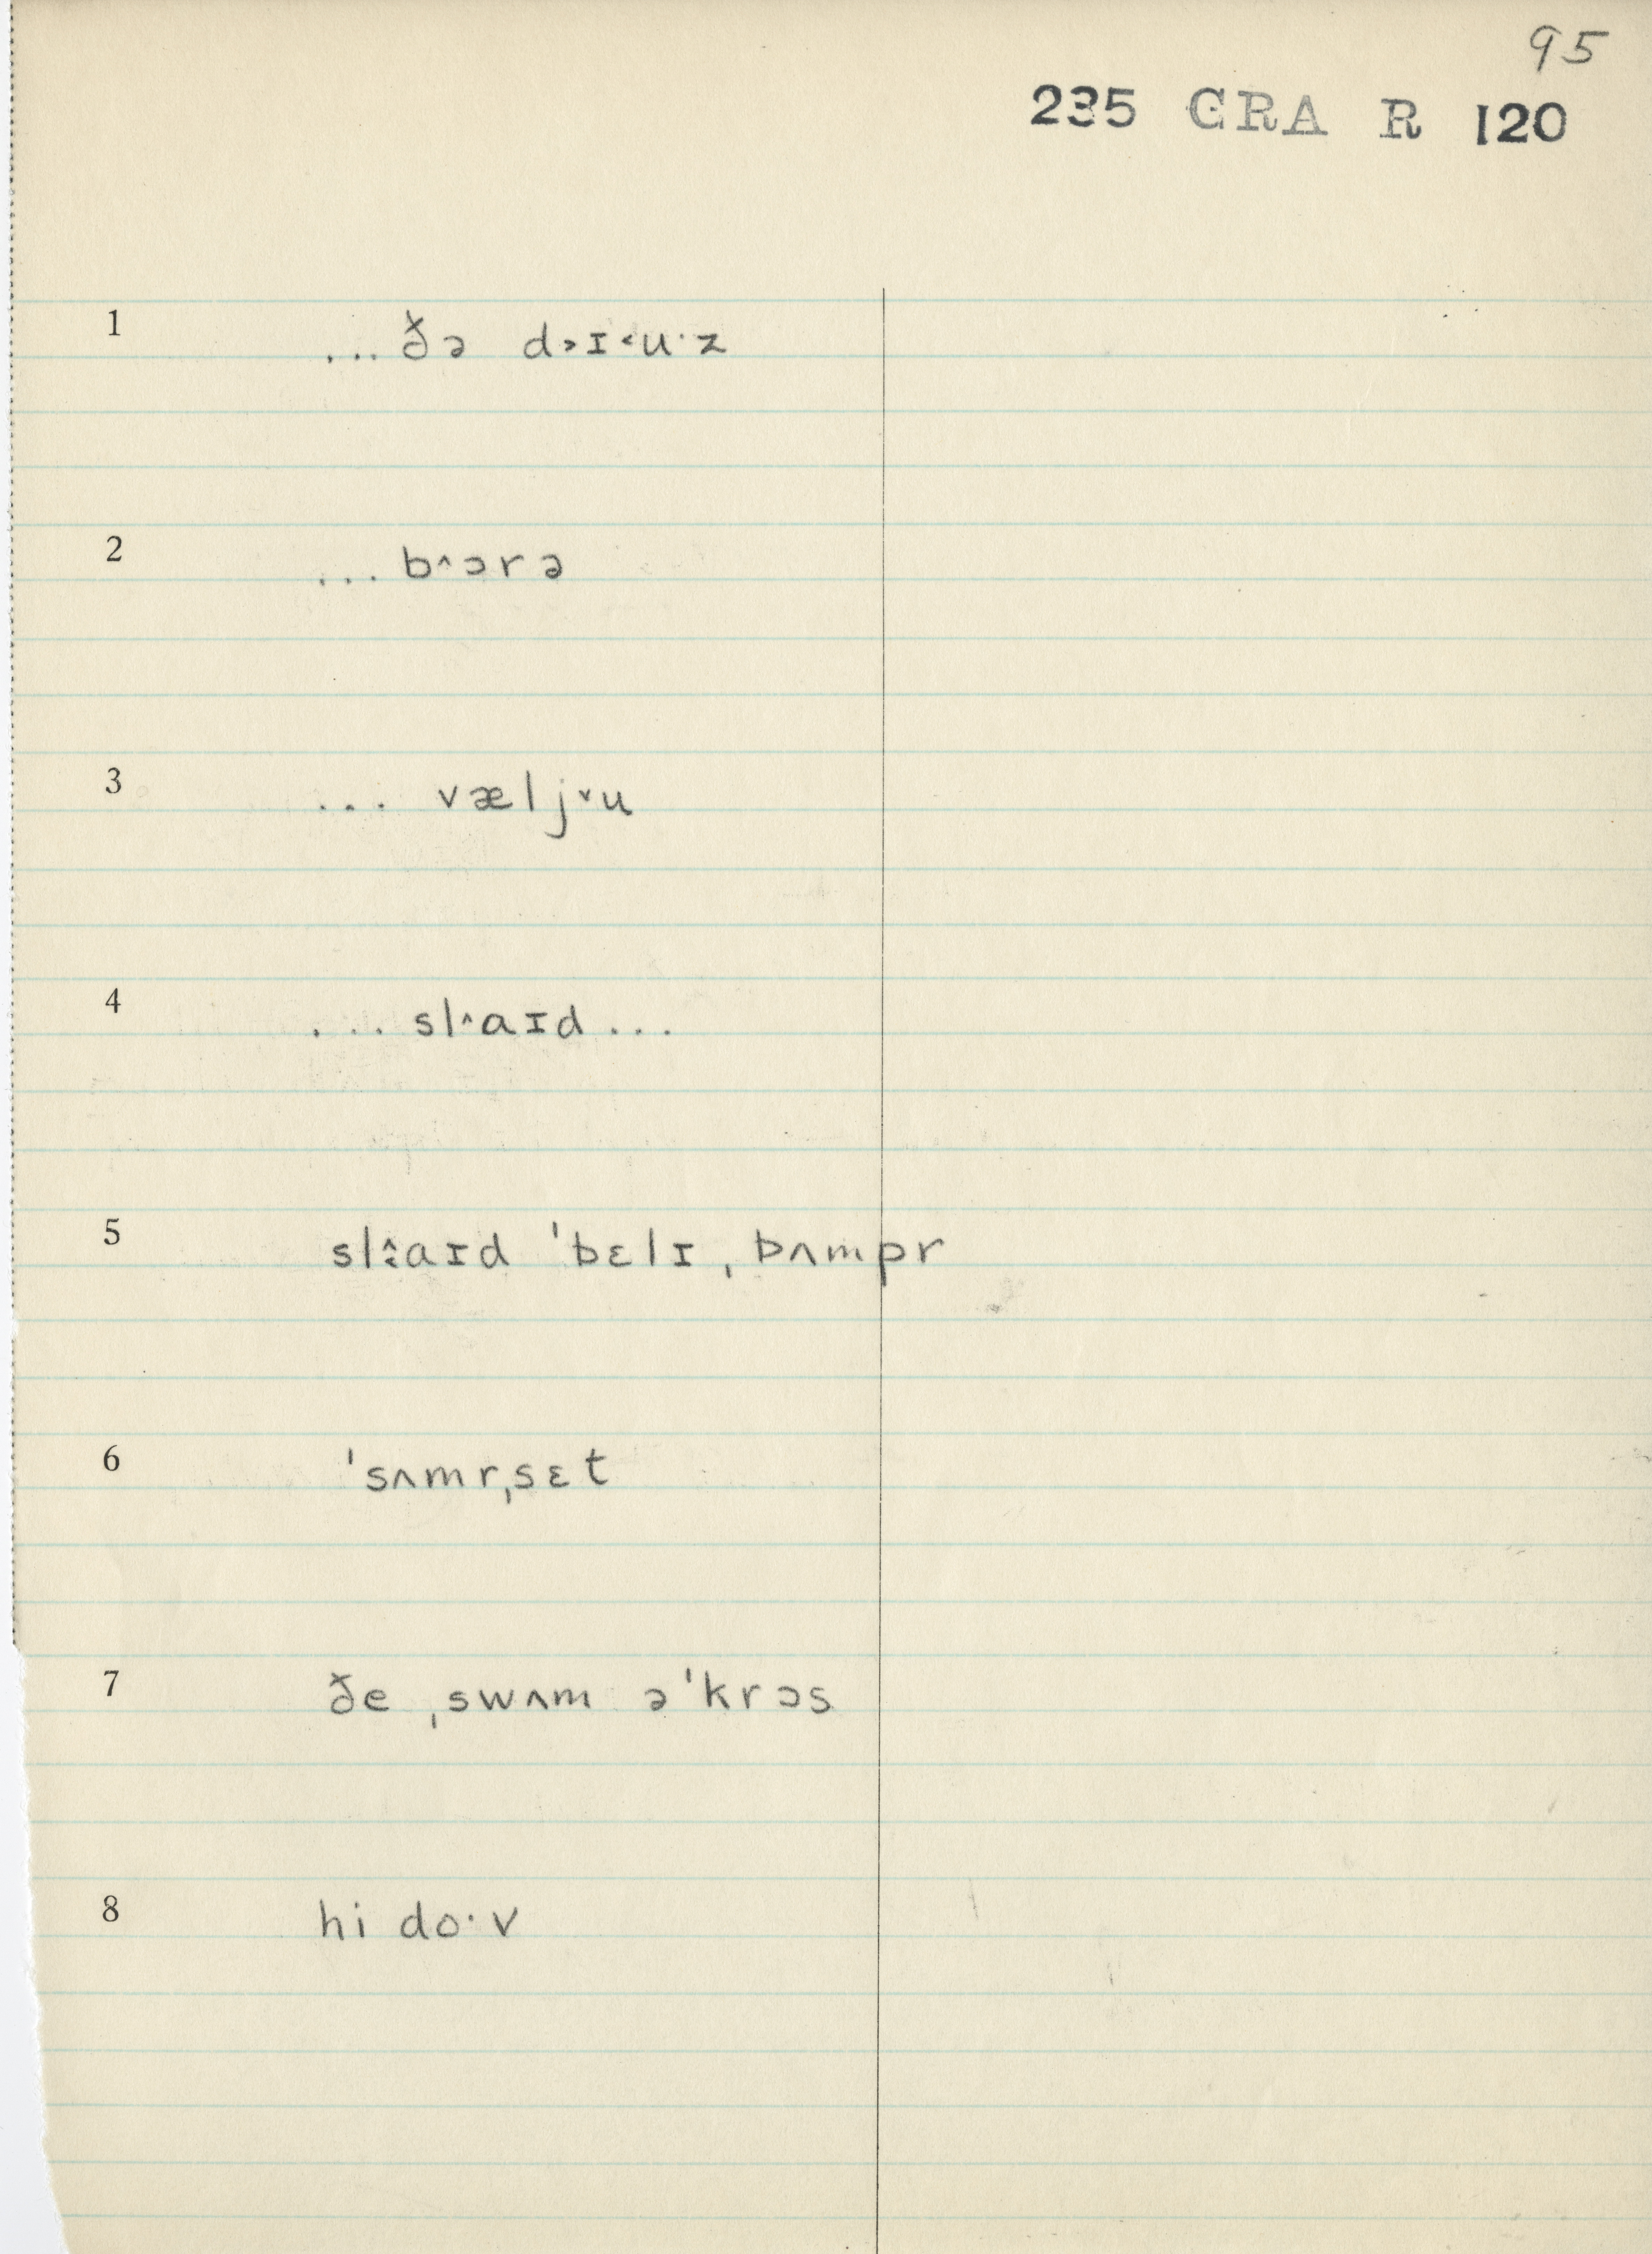 95
235 GRA R 120
1 ...ðə d˃ɪ˂u·z
2 ...b˄ɔrə
3 ... vælj˅u
4 ... sl˄aɪd ...
5 sl˄˰aɪd ˈbɛlɪ ˌbʌmpr
6 ˈsʌmrˌsɛt
7 ðe ˌswʌm əˈkrɔs
8 hi do·v